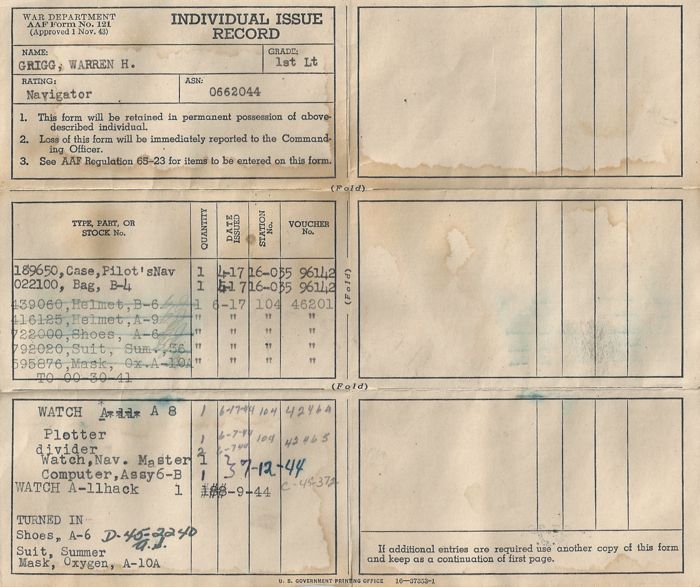 WAR DEPARTMENT
AAF Form No. 121
(Approved 1 Nov. 43)
INDIVIDUAL ISSUE
RECORD
NAME:
GRIGG, WARREN H.
GRADE:
1st Lt
RATING:
Navigator
ASN:
0662044
1. This form will be retained in permanent possession of above-
described individual.
2. Loss of this form will be immediately reported to the Command-
ing Officer.
3. See AAF Regulation 65-23 for items to be entered on this form.
(Fold)
TYPE, PART, OR
STOCK No.
QUANTITY
DATE
ISSUED
STATION
No.
VOUCHER
No.
189650, Case, Pilot'sNav 1 4-17 16-035 96142
022100, Bag, B-4 1 17 16-035 96142
439060, Helmet, B-6 1 6-17 104 46201
416125, Helmet, A-9 " " " "
722000, Shoes, A-6 " " " "
792020, Suit, Sum., 36 " " " "
595876, Mask, Ox. A-10A " " " "
TO 00-30-41
(Fold)
(Fold)
WATCH A-11 A 8 1 6-17-44 104 42464
Plotter 1 6-7-44 104 42465
divider 2 6-7-44
Watch, Nav. Master 1
Computer, Assy6-B 1 7-12-44
WATCH A-11hack 1 8-9-44 C-45-372
TURNED IN
Shoes, A-6 D-45-2240
Suit, Summer
Mask, Oxygen, A-10A
If additional entries are required use another copy of this form
and keep as a continuation of first page.
U. S. GOVERNMENT PRINTING OFFICE 16-37353-1